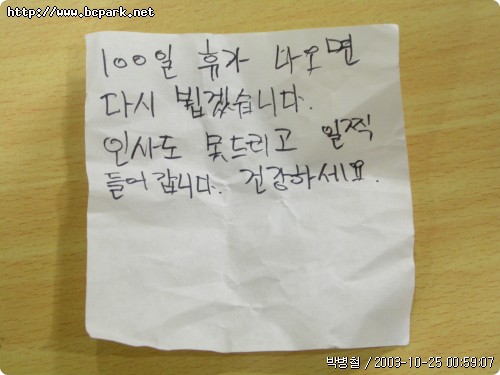 http://www.bcpark.net/
100일 휴가 나오면
다시 뵙겠습니다.
인사도 못드리고 일찍
들어 갑니다. 건강하세요.
박병철 / 2003-10-25 00:59:07